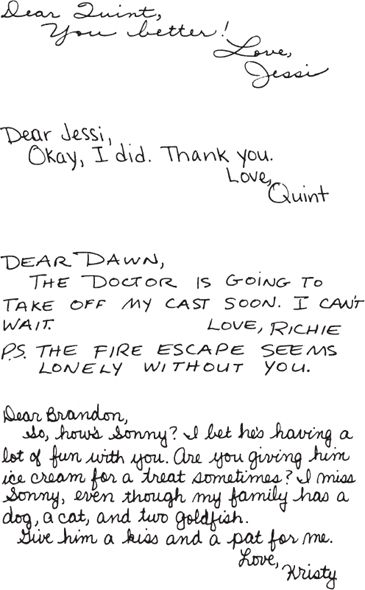 Dear Quint,
You better!
Love,
Jessi
Dear Jessi,
Okay, I did. Thank you.
Love,
Quint
DEAR DAWN,
THE DOCTOR IS GOING TO
TAKE OFF MY CAST SOON. I CAN'T
WAIT. LOVE, RICHIE
P.S. THE FIRE ESCAPE SEEMS
LONELY WITHOUT YOU.
Dear Brandon,
So, how's Sonny? I bet he's having a
lot of fun with you. Are you giving him
ice cream for a treat sometimes? I miss
Sonny, even though my family has a
dog, a cat, and two goldfish.
Give him a kiss and a pat for me.
Love,
Kristy